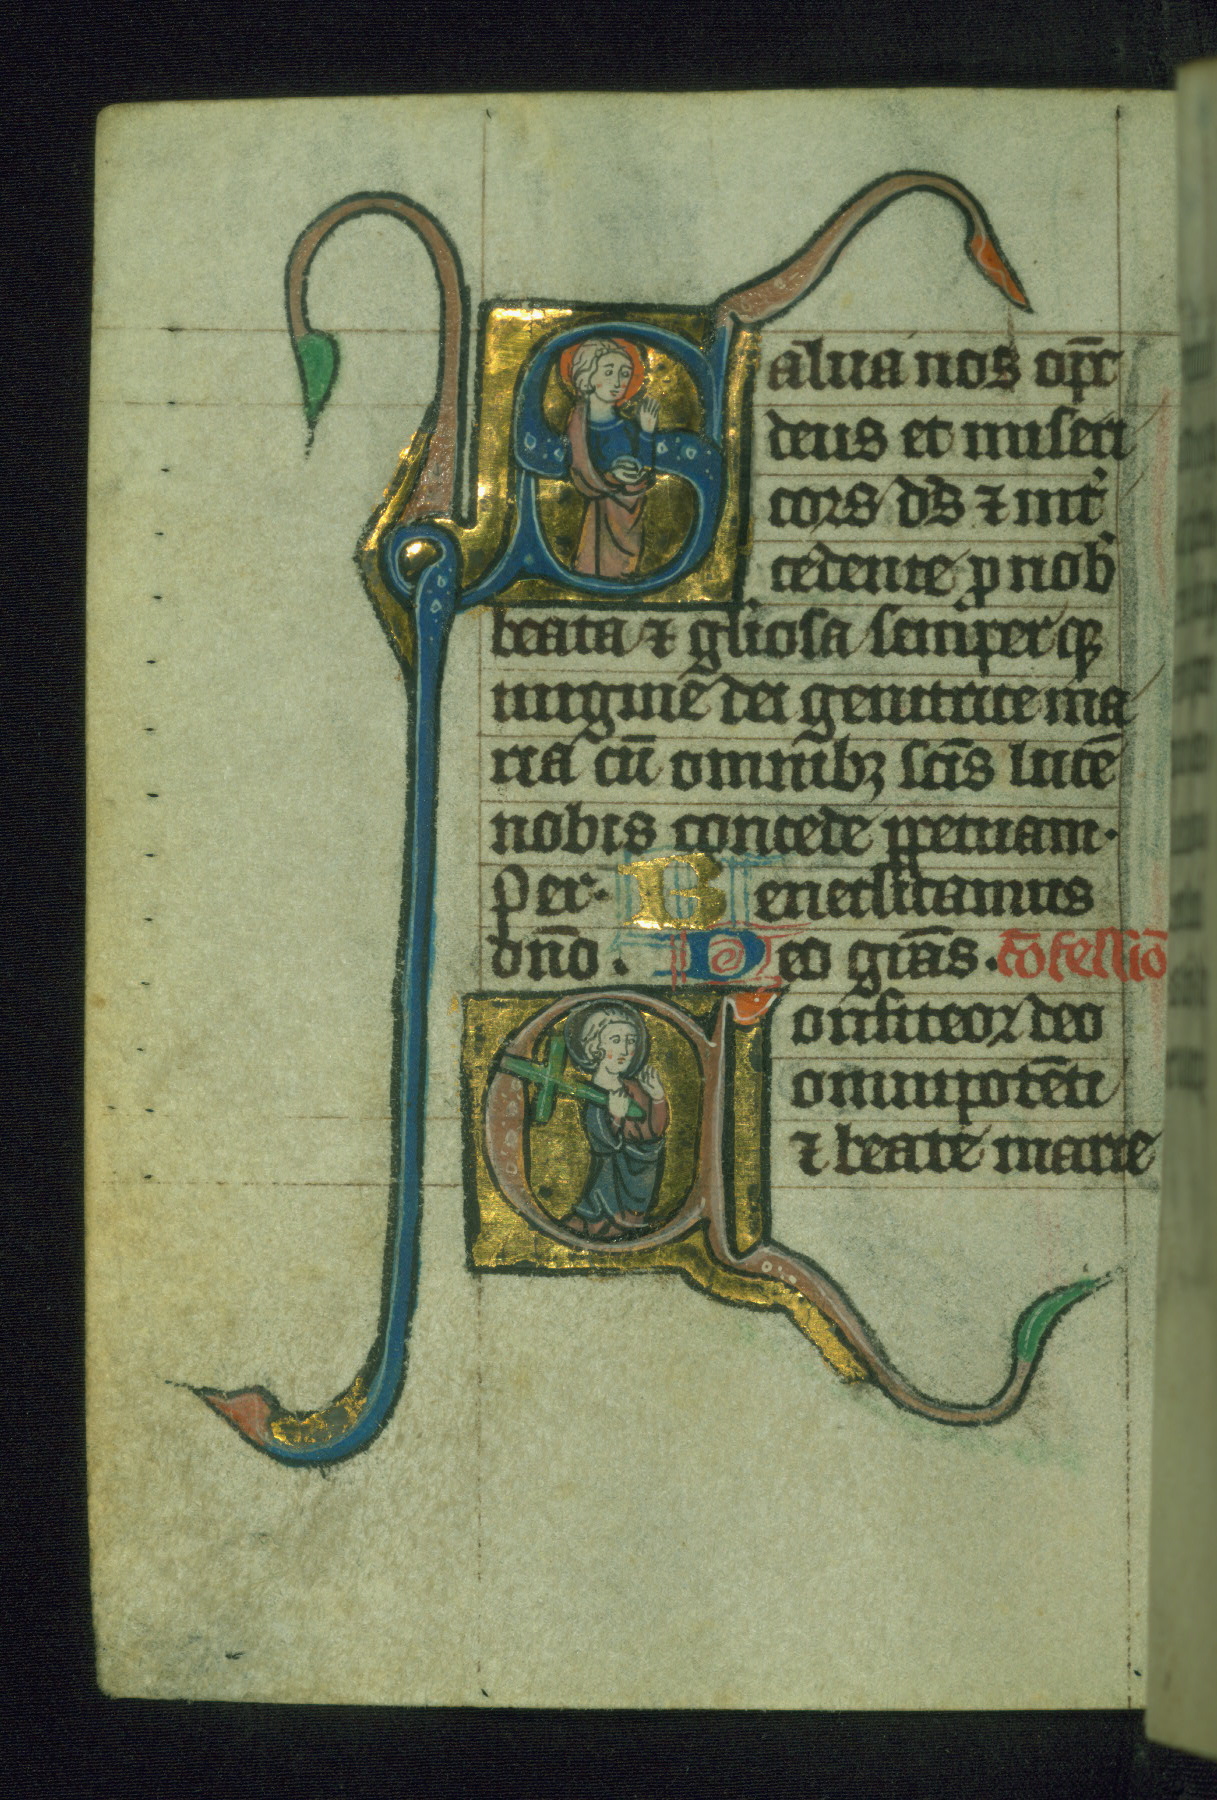 Salua nos op̅s
deus et miseri
cors d̅s ⁊ int᷑
cedente ꝑ nob᷑
beata ⁊ gl̅iosa semper qꝫ
uirgine̅ dei genitrice ma
ria cu̅ omnibꝫ sc̅is luce̅
nobis concede ꝑpetuam.
Per. Benedicamus
dn̅o. Deo gr̅as. co̅fessio̅
Confiteor deo
omnipote̅ti
⁊ beate marie